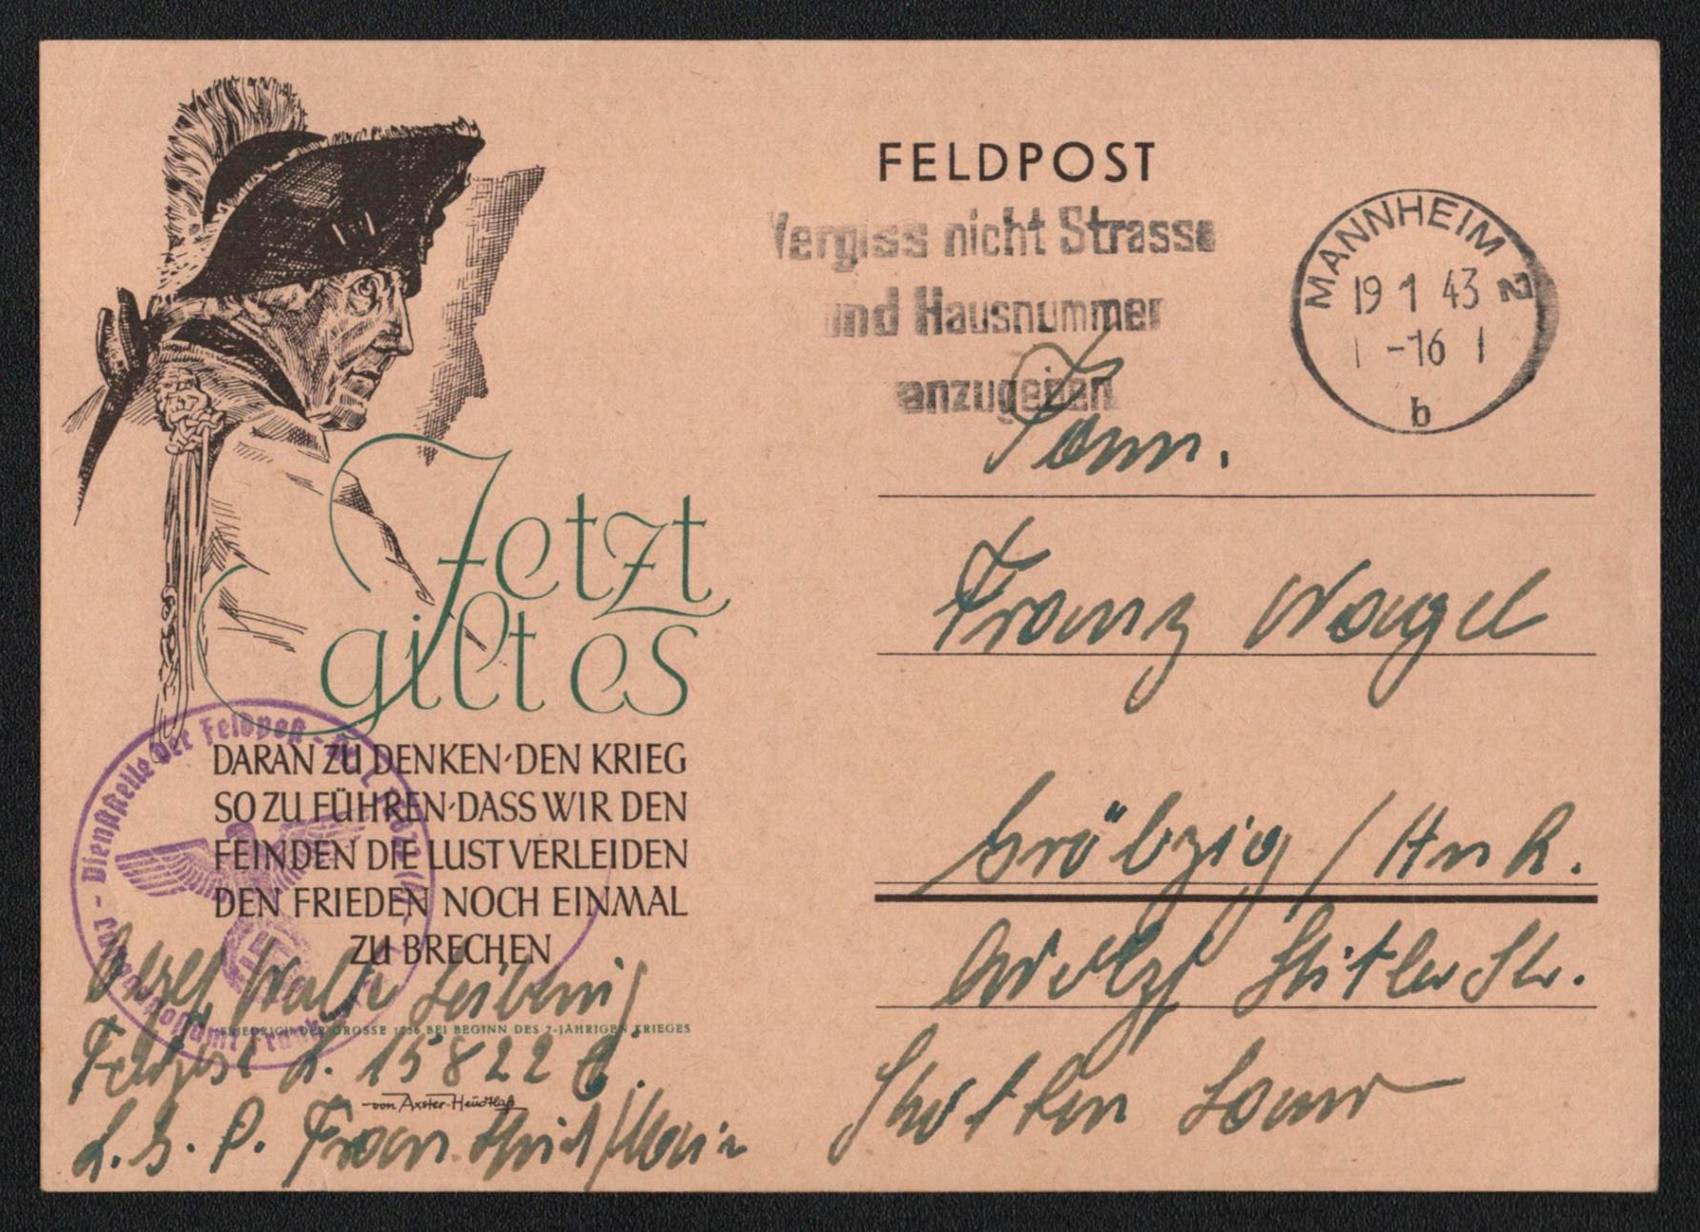 FELDPOST
Vergiss nicht Strasse
und Hausnummer
anzugeben
MANNHEIM 2
19 1 43
-16
b
Jetzt
gilt es
DARAN ZU DENKEN·DEN KRIEG
SO ZU FÜHREN·DASS WIR DEN
FEINDEN DIE LUST VERLEIDEN
DEN FRIEDEN NOCH EINMAL
ZU BRECHEN
FRIEDRICH DER GROSSE 1756 BEI BEGINN DES 7-JÄHRIGEN KRIEGES
von Axster-Heudtlaß
Dienststelle der Feldpost-
Fam.
Franz Nagel
Gröbzig / Anh.
Adolf Hitler Str.
Walter
Feldpost N. 15822
L. G. P. Frankfurt/Main